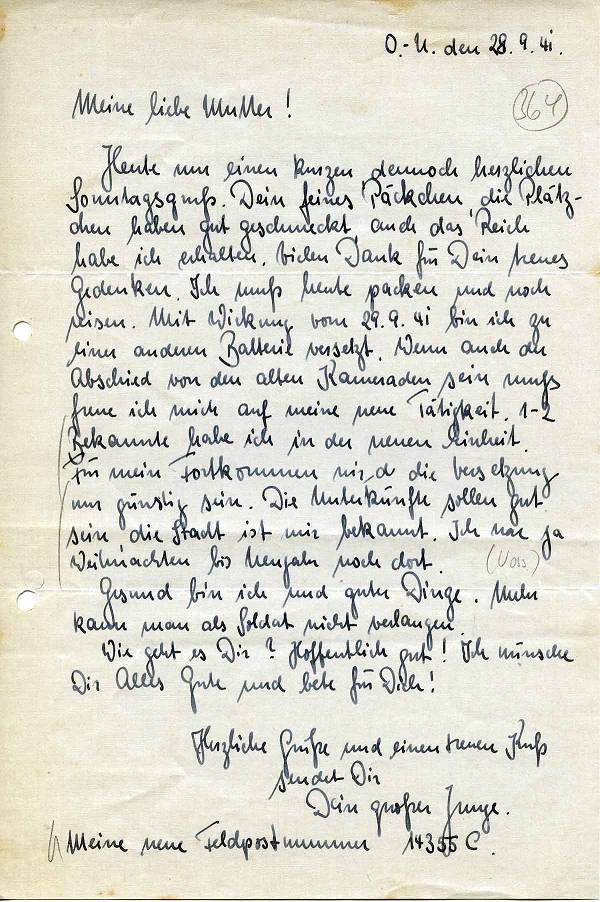 O.-U. den 28. 9. 41.
364
Meine liebe Mutter!
Heute nur einen kurzen, dennoch herzlichen
Sonntagsgruß. Dein feines Päckchen, die Plätz-
chen haben gut geschmeckt, auch das "Reich"
habe ich erhalten. Vielen Dank für Dein treues
Gedenken. Ich muß heute packen und noch
reisen. Mit Wirkung vom 29. 9. 41 bin ich zu
einer anderen Batterie versetzt. Wenn auch der
Abschied von den alten Kameraden sein muß
freue ich mich auf meine neue Tätigkeit. 1-2
Bekannte habe ich in der neuen Einheit.
Für mein Fortkommen wird die Versetzung
nur günstig sein. Die Unterkünfte sollen gut
sein die Stadt ist mir bekannt. Ich war ja
Weihnachten bis Neujahr noch dort.
Gesund bin ich und guter Dinge. Mehr
kann man als Soldat nicht verlangen.
Wie geht es Dir? Hoffentlich gut! Ich wünsche
Dir Alles Gute und bete für Dich!
Herzliche Grüße und einen treuen Kuß
sendet Dir
Dein großer Junge.
Meine neue Feldpostnummer 14355 C.